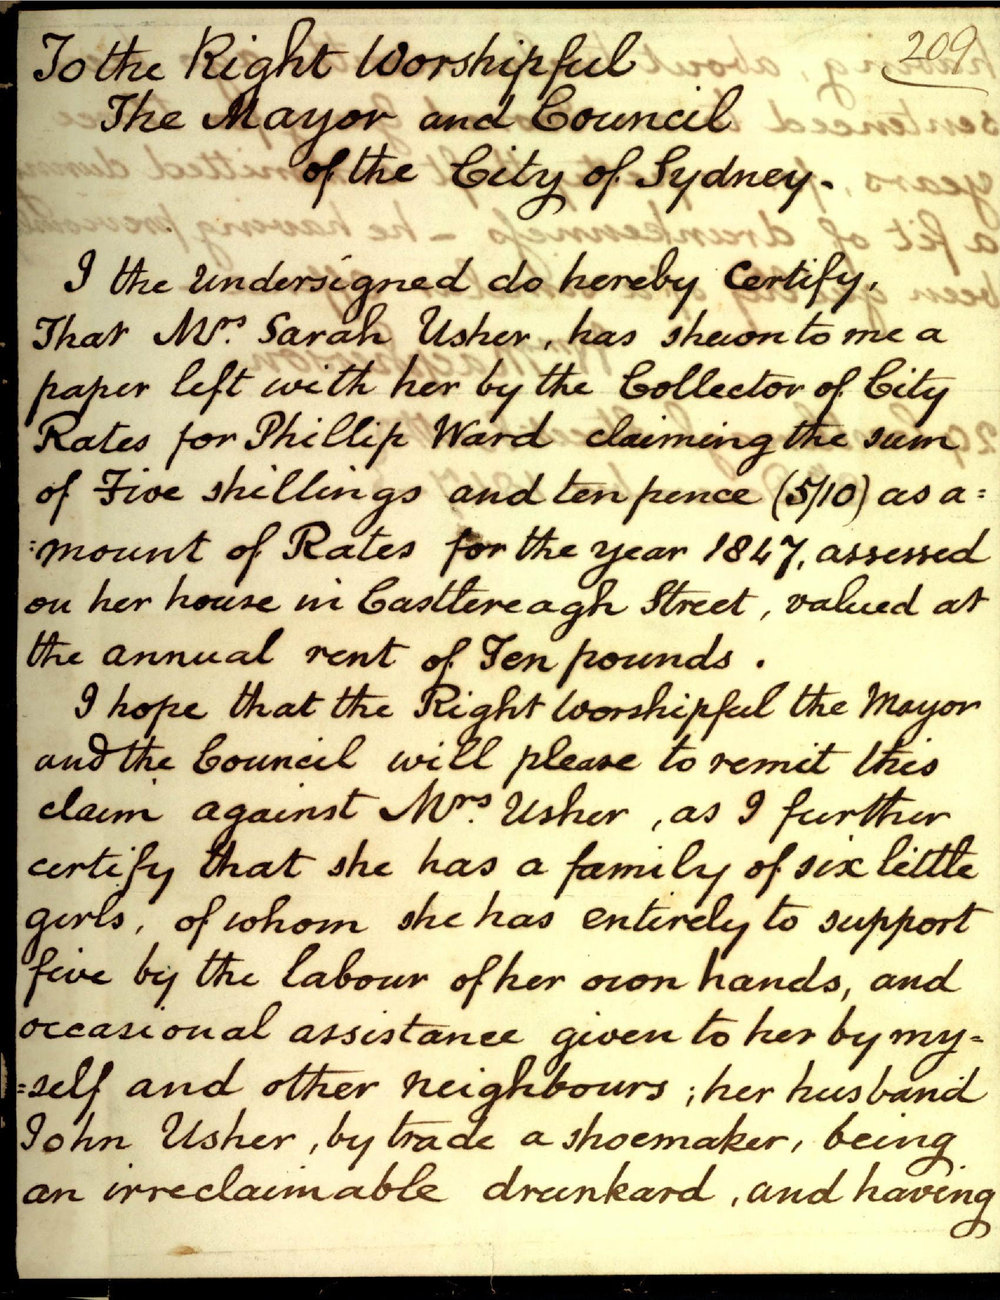 209
To the Right Worshipful
The Mayor and Council
of the City of Sydney.
I the undersigned do hereby Certify,
That Mrs. Sarah Usher, has shewn to me a
paper left with her by the Collector of City
Rates for Phillip Ward claiming the sum
of Five shillings and ten pence (5/10) as a=
=mount of Rates for the year 1847, assessed
on her house in Castlereagh Street, valued at
the annual rent of Ten pounds.
I hope that the Right Worshipful the Mayor
and the Council will please to remit this
claim against Mrs. Usher, as I further
certify that she has a family of six little
girls, of whom she has entirely to support
five by the labour of her own hands, and
occasional assistance given to her by my=
=self and other neighbours; her husband
John Usher, by trade a shoemaker, being
an irreclaimable drunkard, and having